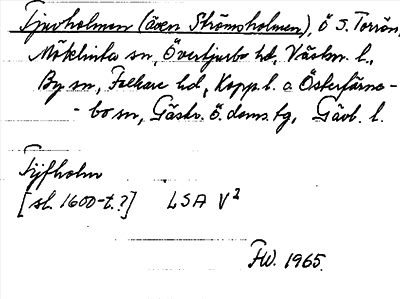 Tjuvholmen (även Strömsholmen), ö S. Torrön,
Möklinta sn, Övertjurbo hd, Västm. l.,
By sn, Folkare hd, Kopp. l. o Österfärne-
-bo sn, Gästr. ö. doms. tg, Gävl. l.
Tijfholm
[sl. 1600-t.?] LSA V²
FW. 1965.